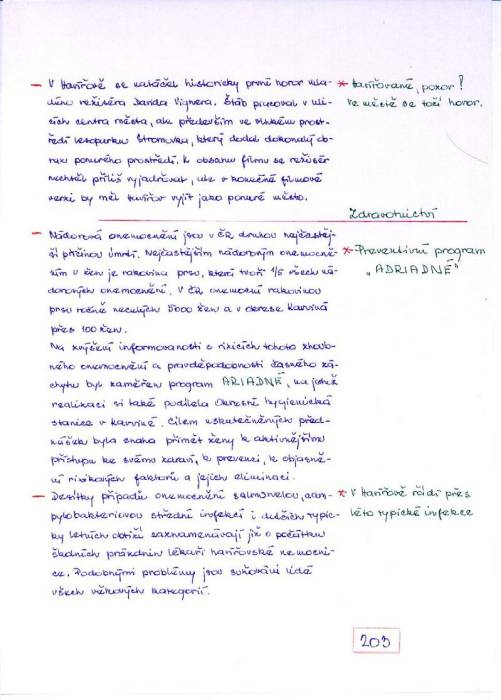 - V Havířově se natáčel historicky první horor mla-
dého režiséra Davida Vignera. Štáb pracoval v uli-
cích centra města, ale především ve vlhkém prost-
ředí lesoparku Stromovka, který dodal dokonalý ob-
raz ponurého prostředí. K obsahu filmu se režisér
nechtěl příliš vyjadřovat, ale v konečné filmové
verzi by měl Havířov vyjít jako ponuré město.
* Havířované, pozor!
Ve městě se točí horor.
Zdravotnictví
- Nádorová onemocnění jsou v ČR druhou nejčastěj-
ší příčinou úmrtí. Nejčastějším nádorovým onemocně-
ním u žen je rakovina prsu, která tvoří 1/5 všech ná-
dorových onemocnění. V ČR onemocní rakovinou
prsu ročně necelých 5000 žen a v okrese Karviná
přes 100 žen.
Na zvýšení informovanosti o rizicích tohoto zhoub-
ného onemocnění a pravděpodobnosti časného zá-
chytu byl zaměřen program ARIADNÉ, na jehož
realizaci si také podílela Okresní hygienická
stanice v Karviné. Cílem uskutečněných před-
nášek byla snaha přimět ženy k aktivnějšímu
přístupu ke svému zdraví, k prevenci, k objasně-
ní rizikových faktorů a jejich eliminaci.
* Preventivní program
"ADRIADNÉ"
- Desítky případů onemocnění salmonelou, cam-
pylobakteriovou střevní infekcí i dalších typic-
ky letních obtíží zaznamenávají již o počátku
školních prázdnin lékaři havířovské nemocni-
ce. Podobnými problémy jsou sužováni lidé
všech věkových kategorií.
* V Havířově řádí přes
léto typické infekce
203